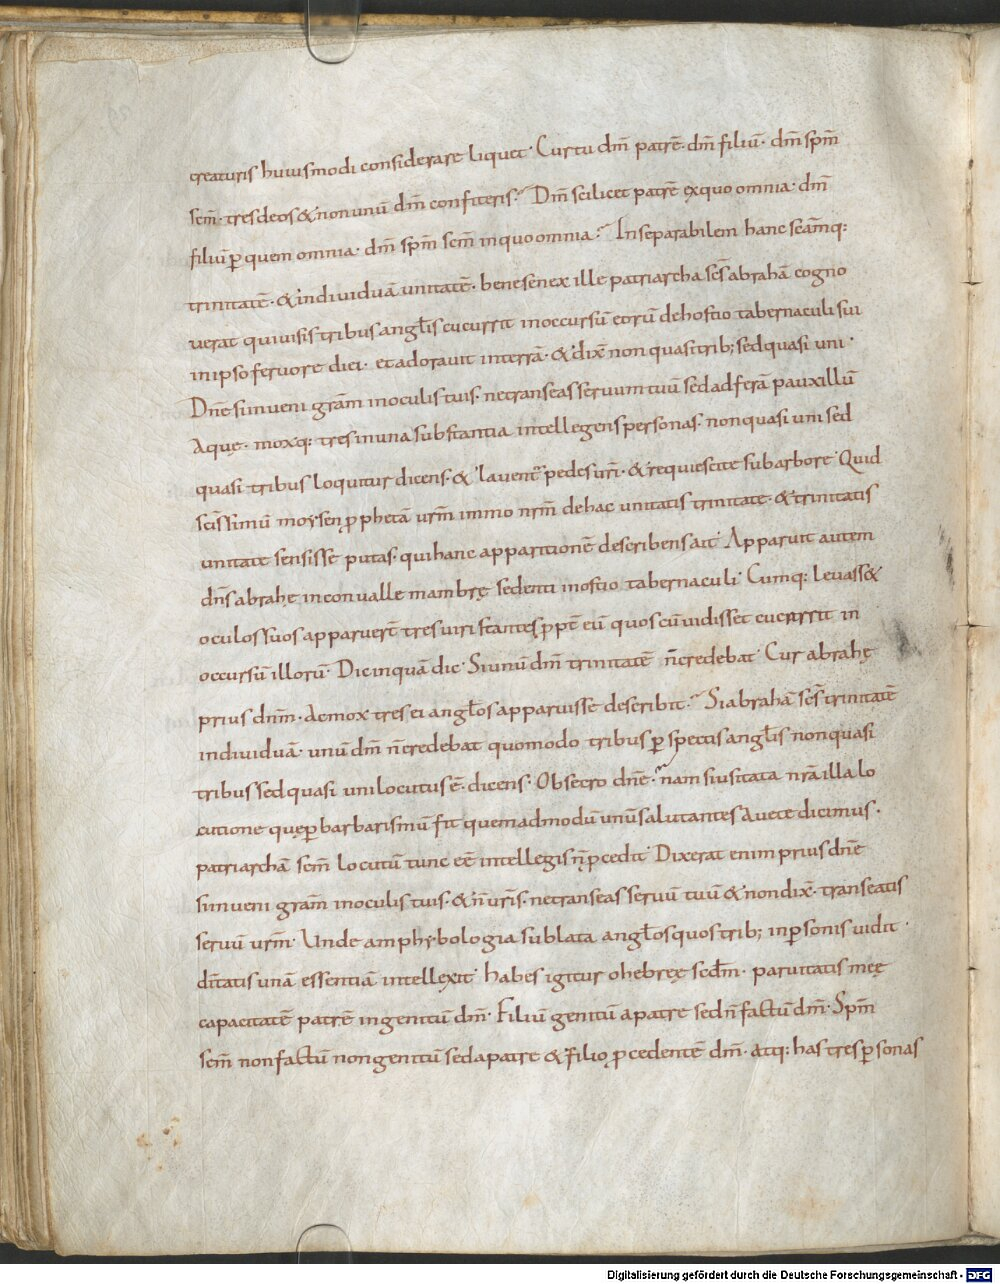 creaturis huiusmodi considerare liquet· Cur tu dm̄ patrē· dm̄ filiū· dm̄ spm̄
scm̄· tres deos & non unū dm̄ confiteris? Dm̄ scilicet patrē ex quo omnia· dm̄
filiū ꝑ quem omnia· dm̄ spm̄ scm̄ in quo omnia? Inseparabilem hanc scāmq:
trinitatē· & individuā unitatē· bene senex ille patriarcha scs̄ abrahā cogno
verat qui visis tribus angłis cucurrit in occursū eorū de hostio tabernaculi sui
in ipso fervore diei· et adoravit in terrā· & dix̄ non quasi trib; sed quasi uni·
Dn̄e si inveni grām in oculis tuis· ne transeas servum tuū sed adferā pauxillū
Aquę· moxq: tres in una substantia intellegens personas· non quasi uni sed
quasi tribus loquitur dicens· & laventᷣ pedes urī· & requiescite sub arbore· Quid
scīssimū moysen ꝓphetā urm̄ immo nrm̄ de hac unitatis trinitate· & trinitatis
unitate sensisse putas· qui hanc apparitionē describens ait· Apparuit autem
dn̄s abrahę in convalle mambrę sedenti in ostio tabernaculi· Cumq: levass&
oculos suos apparuerē tres viri stantes ꝓpē eū· quos cū vidisset cucurrit in
occursū illorū· Dic inquā dic· Si unū dm̄ trinitatē n̄ credebat· Cur abrahę
prius dnm̄· ac mox tres ei angłos apparuisse describit? Si abrahā scs̄ trinitatē
individuā· unū dm̄ n̄ credebat quomodo tribus ꝑspectis angłis non quasi
tribus sed quasi uni locutus ē· dicens· Obsecro dn̄e? nam si usitata nrā illa lo
cutione quę ꝑ barbarismū fit quemadmodū unū salutantes Avete dicimus·
patriarchā scm̄ locutū tunc eē intellegis n̄ ꝓcedit· Dixerat enim prius dn̄e
si inveni grām in oculis tuis· & n̄ urīs· ne transeas servū tuū & non dix̄· transeatis
servū urm̄· Unde amphybologia sublata angłos quos trib; in ꝑsonis vidit·
dītatis unā essentiā intellexit· habes igitur o hebręe scdm̄· parvitatis meę
capacitatē patrē ingenitū dm̄· Filiū genitū a patre sed n̄ factū dm̄· Spm̄
scm̄ non factū non genitū sed a patre & filio ꝓcedentē dm̄· atq: has tres ꝑsonas
Digitalisierung gefördert durch die Deutsche Forschungsgemeinschaft - DFG